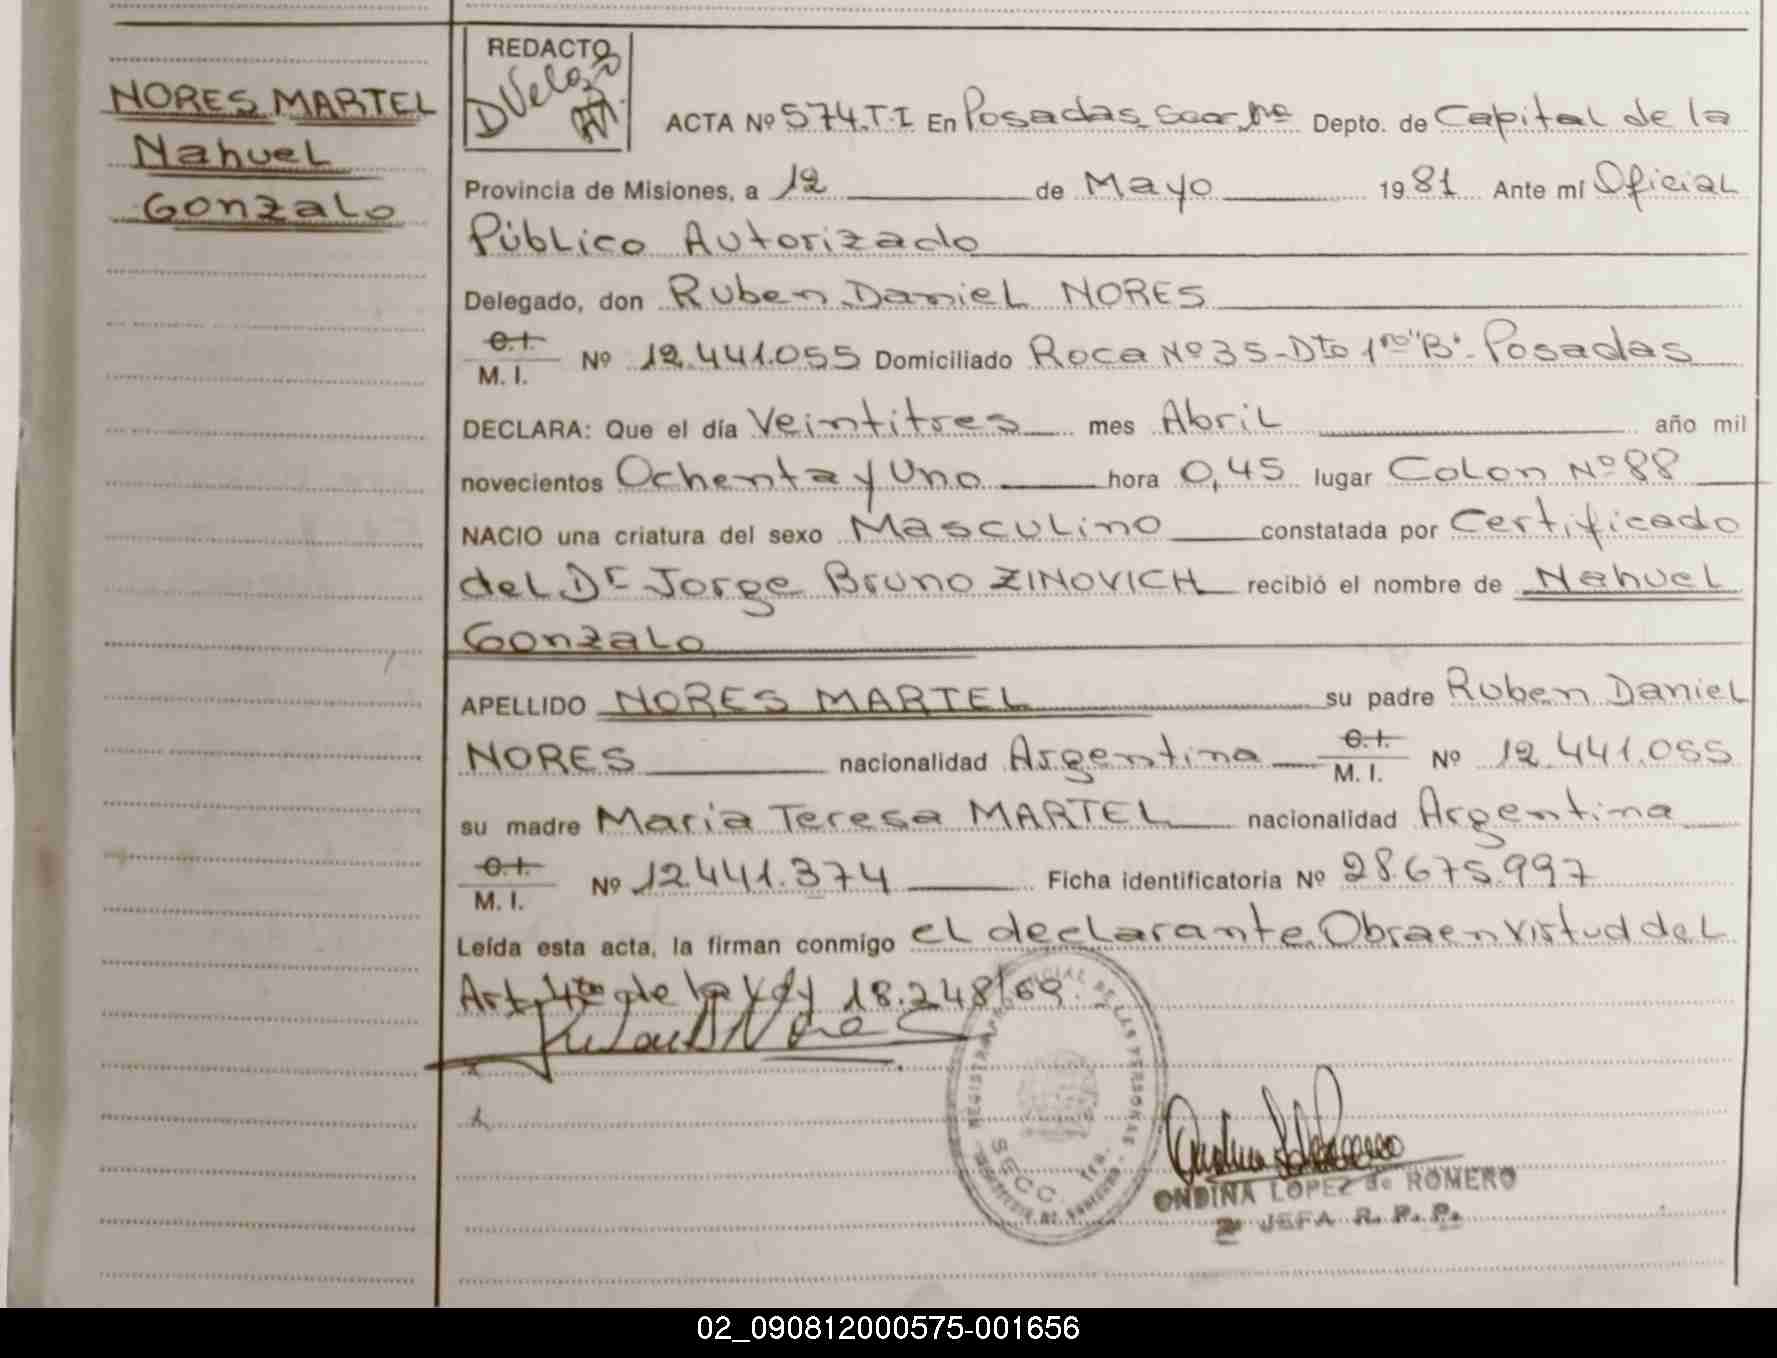 NORES MARTEL
Nahuel
Gonzalo
REDACTO
ACTA Nº 574.T.I En Posadas Depto. de Capital de la
Provincia de Misiones, a 12 de Mayo 1981 Ante mí Oficial
Público Autorizado
Delegado, don Ruben Daniel NORES
C.I.
M. I. Nº 12.441.055 Domiciliado Roca Nº 35 - Dto 1ro "B" - Posadas
DECLARA: Que el día Veintitres mes Abril año mil
novecientos Ochenta y Uno hora 0,45 lugar Colon Nº 88
NACIO una criatura del sexo Masculino constatada por Certificado
del Dr Jorge Bruno ZINOVICH recibió el nombre de Nahuel
Gonzalo
APELLIDO NORES MARTEL su padre Ruben Daniel
NORES nacionalidad Argentina C.I.
M. I. Nº 12.441.055
su madre Maria Teresa MARTEL nacionalidad Argentina
C.I.
M. I. Nº 12.441.374 Ficha identificatoria Nº 28.675.997
Leída esta acta, la firman conmigo el declarante. Obra en virtud del
Art. 4to de la Ley 18.248/69.
REGISTRO PROVINCIAL DE LAS PERSONAS
SECC. 1ra.
ONDINA LOPEZ de ROMERO
2ª JEFA R. P. P.
02_090812000575-001656